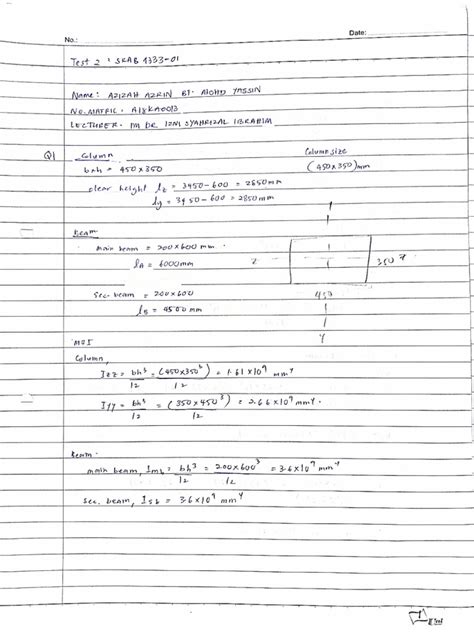 No.:
Date:
Test 2 : SKAB 4333-01
Name: AZIZAH AZRIN BT. MOHD YASSIN
NO. MATRIC : A18KA0013
LECTURER : PM DR. IZNI SYAHRIZAL IBRAHIM
Q1 Column
Column size
bxh = 450 x 350
(450x350) mm
clear height lz = 3450-600 = 2850 mm
ly = 3450-600 = 2850 mm
Beam
main beam = 200x600 mm.
z 350 z
lA = 6000mm
sec. beam = 200x600
450
lB = 4500 mm
y
MOI
Column,
Izz = bh³/12 = (450x350³)/12 = 1.61 x 10⁹ mm⁴
Iyy = bh³/12 = (350x450³)/12 = 2.66 x 10⁹ mm⁴.
Beam.
main beam, Imb = bh³/12 = 200x600³/12 = 3.6x10⁹ mm⁴
sec. beam, Isb = 3.6x10⁹ mm⁴
1